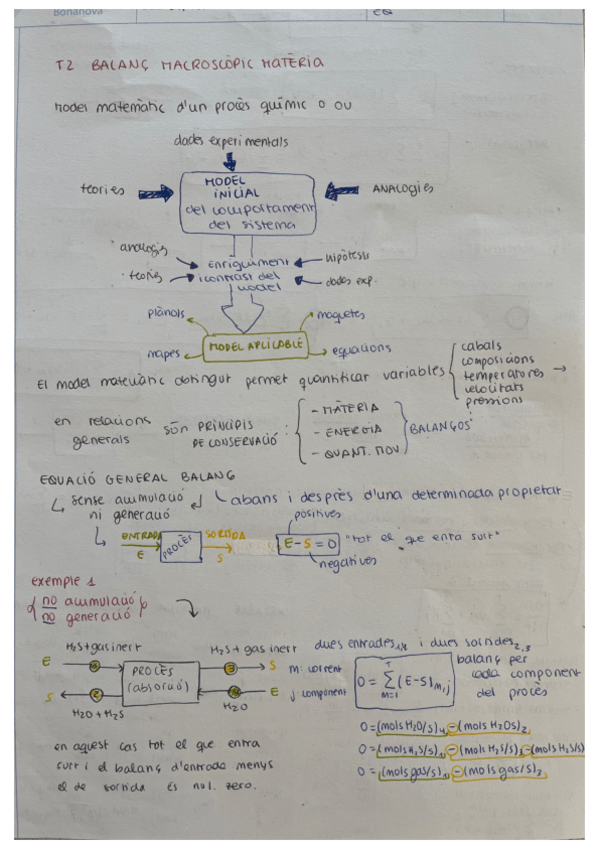 Bonanova
EQ
T2 BALANÇ MACROSCÒPIC MATÈRIA
Model matemàtic d'un procès químic o OU
dades experimentals
teories
MODEL
INICIAL
del comportament
del sistema
ANALOGIES
· analogis
enriquiment
hipòtesis
· teories
i contrast del
dades exp.
model
plànols
maquetes
MODEL APLICABLE
mapes
equacions
El model matemàtic obtingut permet quantificar variables
cabals
composicions
temperatures
velocitats
pressions
en relacions
generals
són PRINCIPIS
DE CONSERVACIÓ :
- MATÈRIA
- ENERGIA
- QUANT. MOV
BALANÇOS
EQUACIÓ GENERAL BALANÇ
sense acumulació
ni generació
abans i desprès d'una determinada propietat
positives
ENTRADA
E
PROCÉS
SORTIDA
S
E - S = 0
"tot el que entra surt"
negatives
exemple 1
no acumulació
no generació
H₂S + gas inert
E
1
PROCÉS
(absorció)
H₂S + gas inert
3
S
S
2
H₂O + H₂S
4
E
H₂O
dues entrades 1,4 i dues sortides 2,3
m: corrent
j component
0 = Σ (E-S)m,j
m=1
balanç per
cada component
del procès
0 = (mols H₂O/s)₄ - (mols H₂Os)₂
0 = (mols H₂S/s)₁ - (mols H₂S/s)₂ - (mols H₂S/s)
0 = (mols gas/s)₁ - (mols gas/s)₃
en aquest cas tot el que entra
surt i el balanç d'entrada menys
el de sortida és nul. zero.